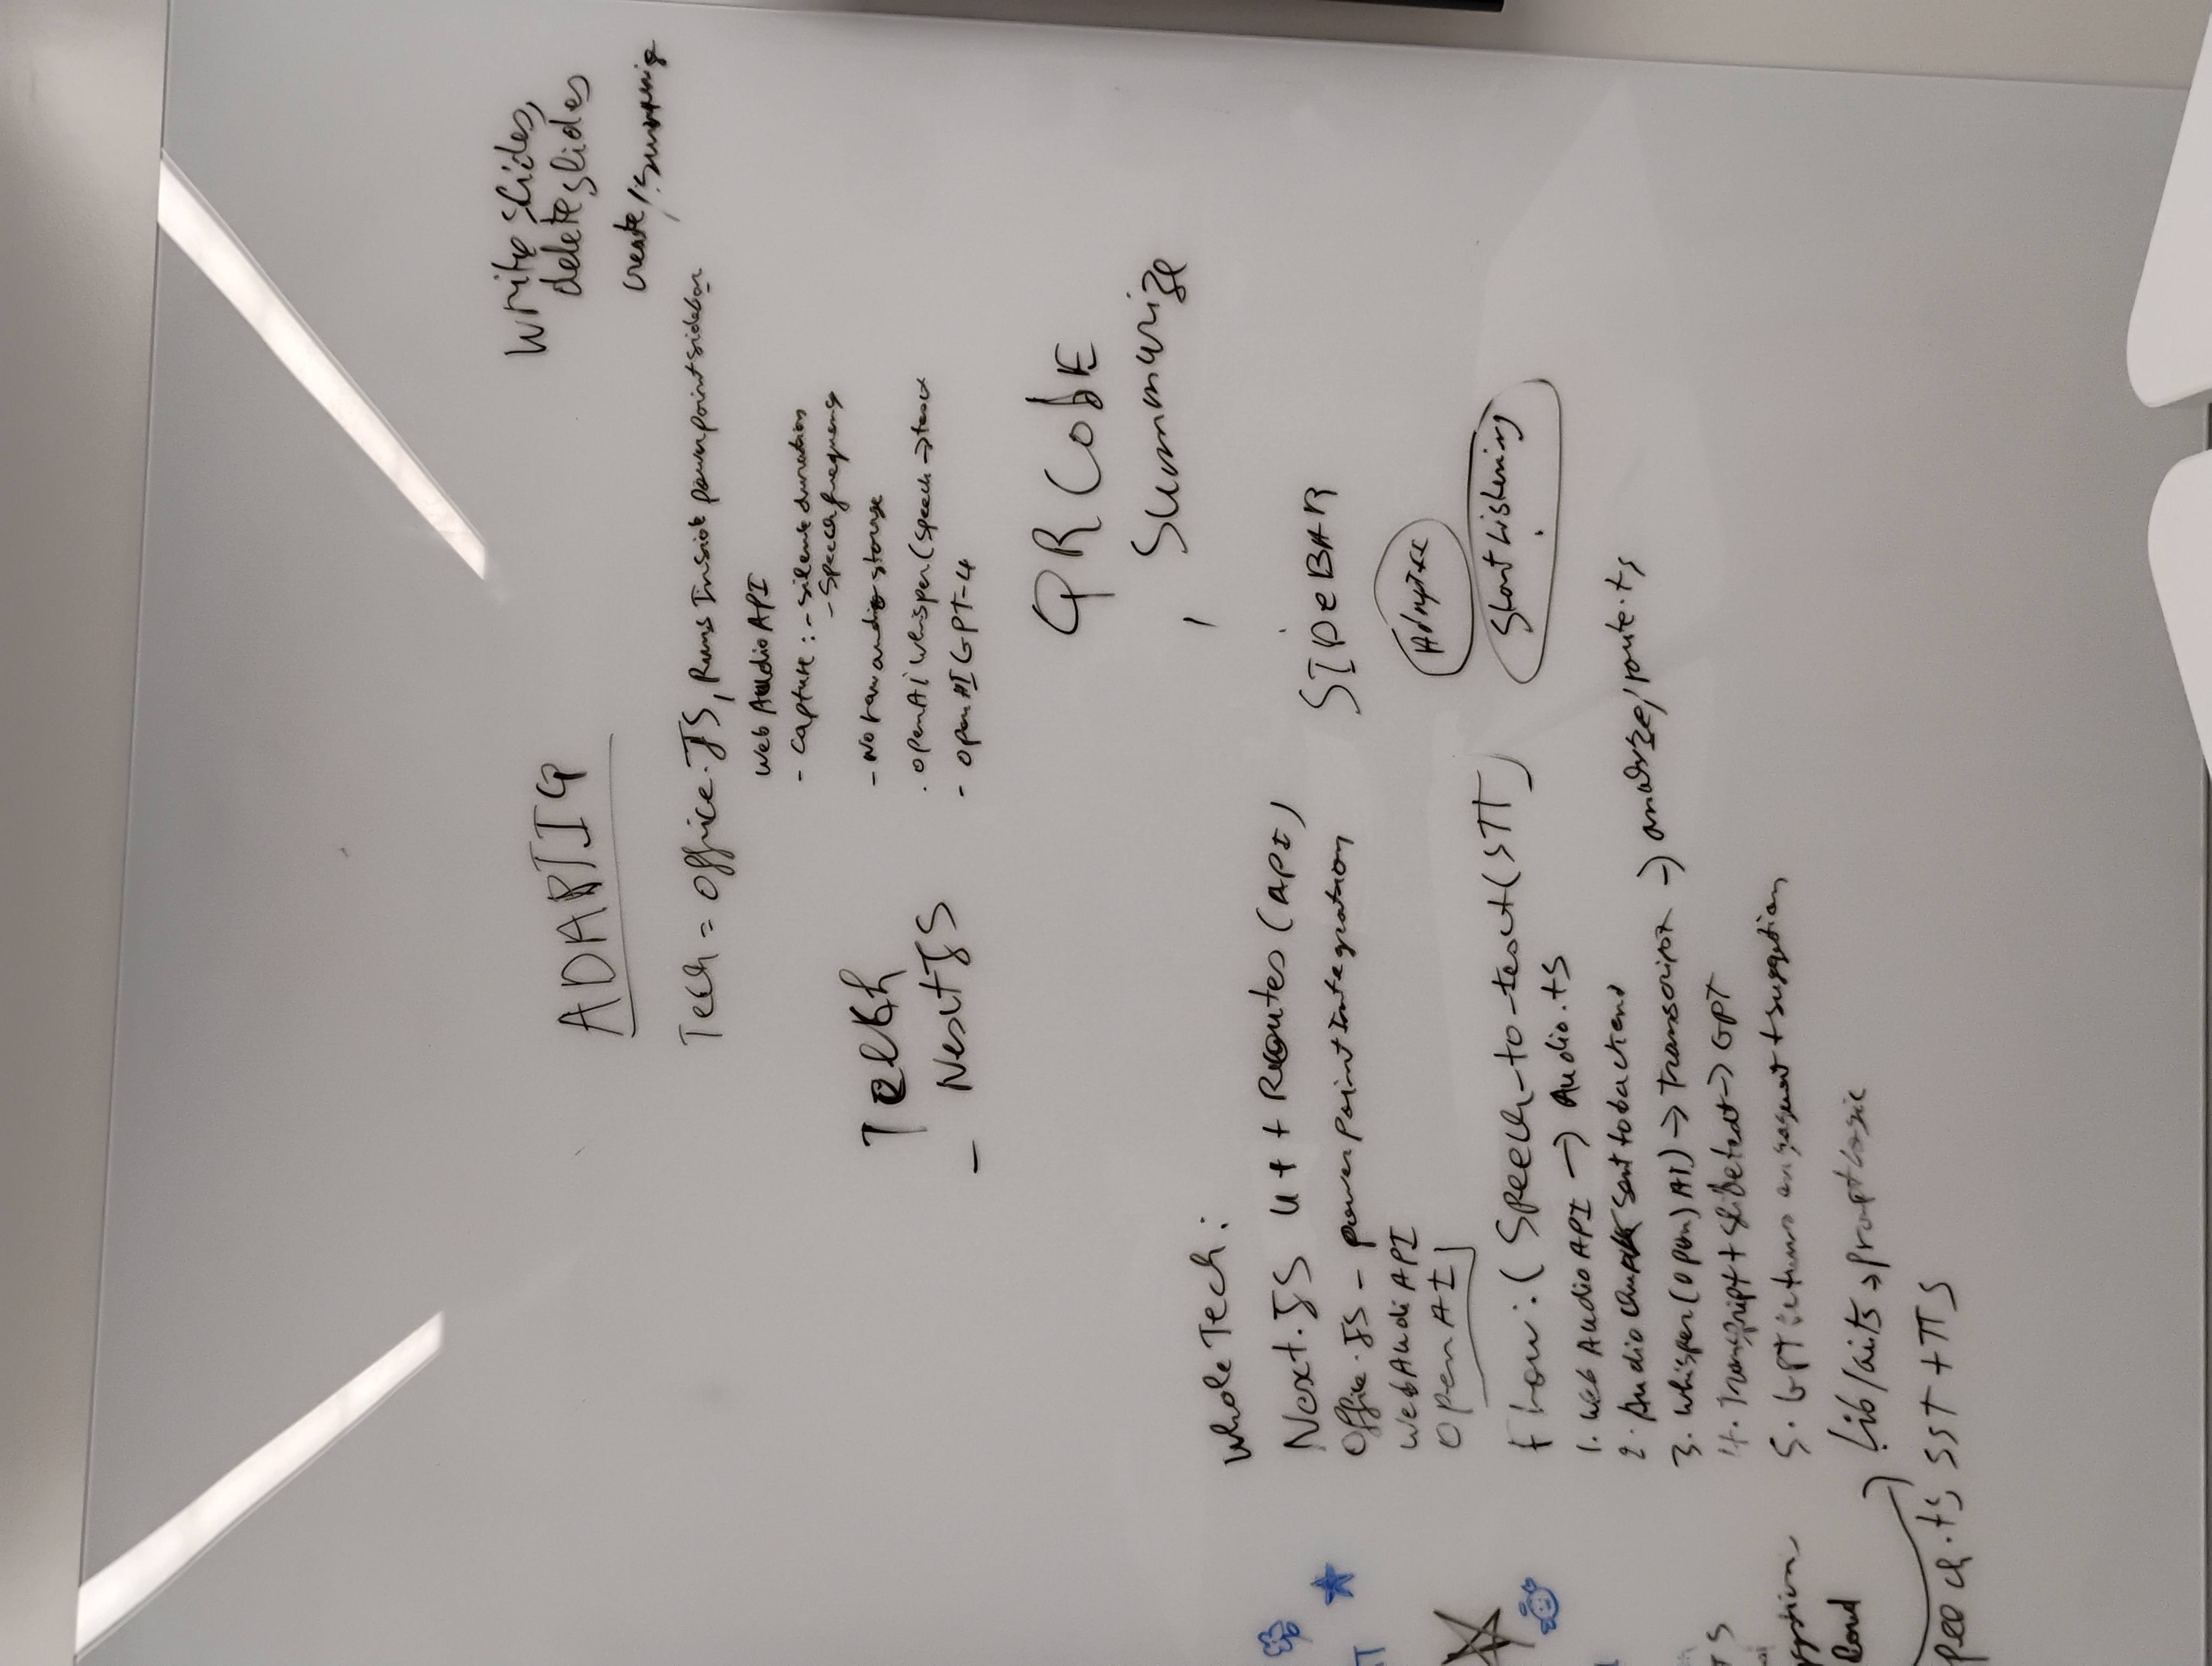 write slides,
delete slides
create/
ADAPTIQ
Tech = Office.JS, Runs Inside powerpoint sidebar
Web Audio API
- Capture: - silence duration
- Speech frequency
- No raw audio storage
. OpenAi whisper (speech → text
- open AI GPT-4
Tech
- NextJS
QR CODE
, Summarize
Whole Tech:
Next.JS UI + Routes (API)
Office.JS - powerPoint Integration
Web Audi API
OpenAI
SIDEBAR
Start Listening
Flow: (Speech-to-text (STT)
1. Web Audio API → Audio.ts
2. Audio chunk sent to backend
3. whisper (Open AI) → transcript → analyze/route.ts
4. Transcript + slide text → GPT
5. GPT returns + suggestion
lib/ai.ts → prompt logic
peech.ts, SST + TTS